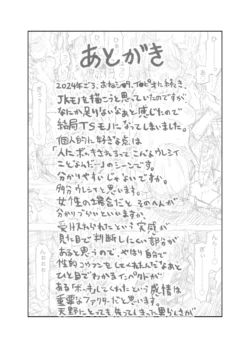 あとがき
2024年ごろ、おねショタ、
JKモノを描こうと思っていたのですが
なにか足りないなぁと感じたので
結局TSモノになってしまいました。
個人的に好きな点は
「人にボッキされるってこんなウレシイ
ことなんだ…」のシーンです。
分かりやすいじゃないですか。
多分ウレシイと思います。
女性の場合だと、そのへんが
分かりづらいといいますか、
受け入れられたという実感が
見た目で判断しにくい部分が
あると思うので、やはり自分で
性的コウフンをしてくれたんだなぁと
ひと目でわかるインパクトが
ある「ボッキしてくれた」という感情は
重要なファクターだと思います。
天野にとっても失ってしまった